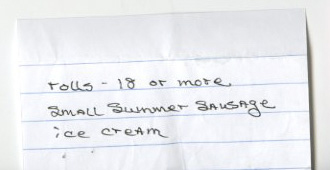 rolls - 18 or more
small summer sausage
ice cream